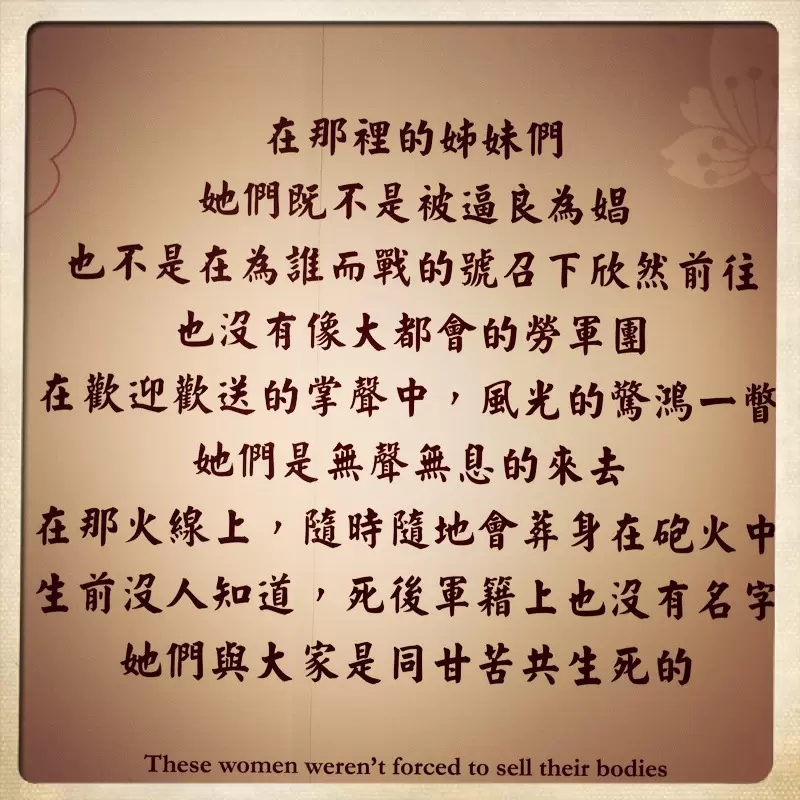 在那裡的姊妹們
她們既不是被逼良為娼
也不是在為誰而戰的號召下欣然前往
也沒有像大都會的勞軍團
在歡迎歡送的掌聲中，風光的驚鴻一瞥
她們是無聲無息的來去
在那火線上，隨時隨地會葬身在砲火中
生前沒人知道，死後軍籍上也沒有名字
她們與大家是同甘苦共生死的
These women weren't forced to sell their bodies